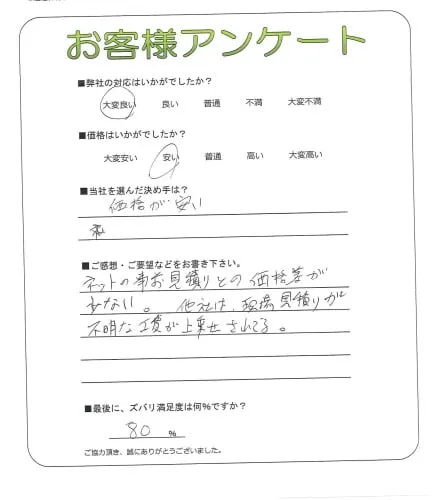 お客様アンケート
■弊社の対応はいかがでしたか？
大変良い 良い 普通 不満 大変不満
■価格はいかがでしたか？
大変安い 安い 普通 高い 大変高い
■当社を選んだ決め手は？
価格が安い
■ご感想・ご要望などをお書き下さい。
ネットの事前見積りとの価格差が
少ない。他社は、現場見積りが
不明な工費が上乗せされてる。
■最後に、ズバリ満足度は何％ですか？
80 %
ご協力頂き、誠にありがとうございました。